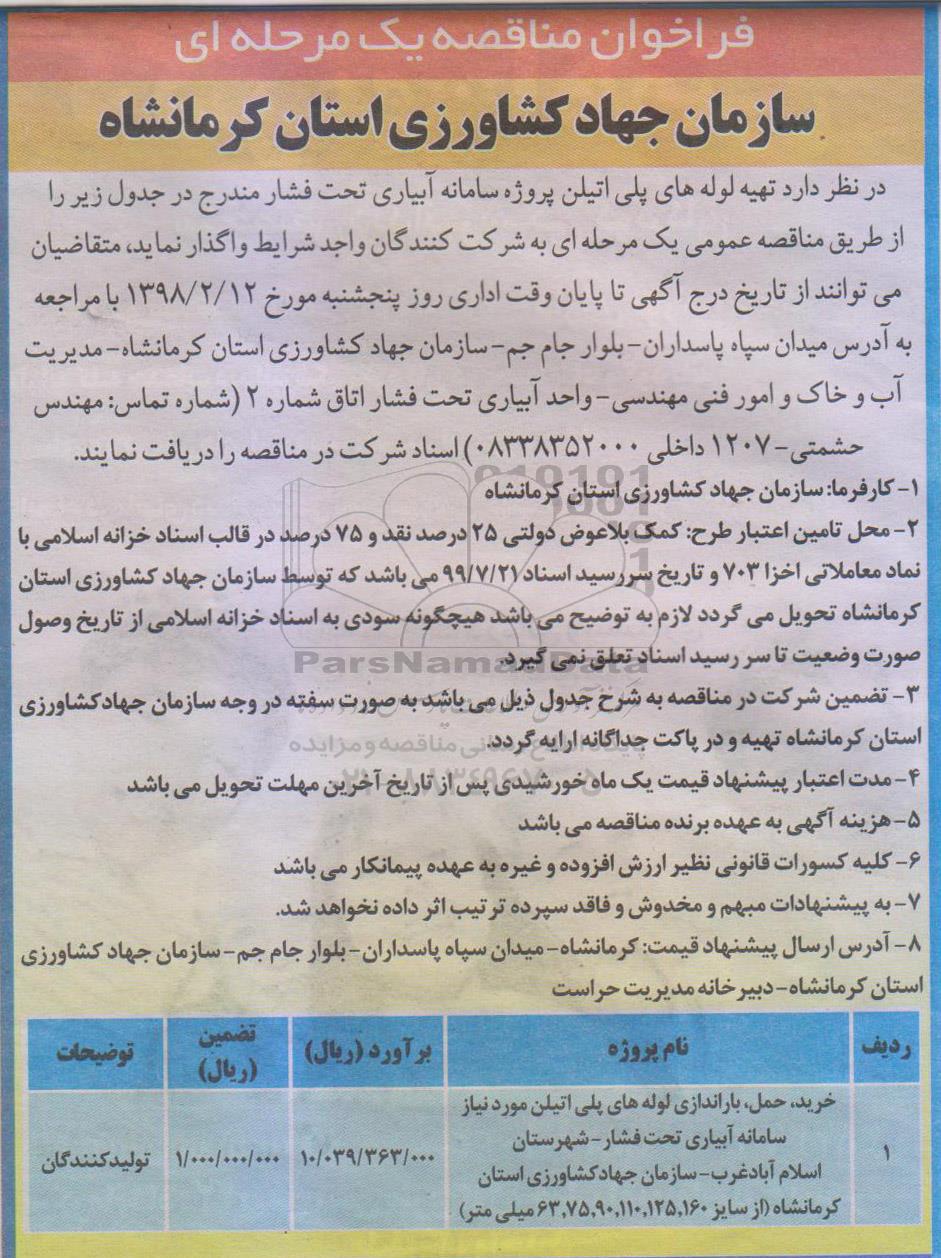 فراخوان مناقصه یک مرحله ای
سازمان جهاد کشاورزی استان کرمانشاه
در نظر دارد تهیه لوله های پلی اتیلن پروژه سامانه آبیاری تحت فشار مندرج در جدول زیر را
از طریق مناقصه عمومی یک مرحله ای به شرکت کنندگان واجد شرایط واگذار نماید، متقاضیان
می توانند از تاریخ درج آگهی تا پایان وقت اداری روز پنجشنبه مورخ ۱۳۹۸/۲/۱۲ با مراجعه
به آدرس میدان سپاه پاسداران-بلوار جام جم-سازمان جهاد کشاورزی استان کرمانشاه-مدیریت
آب و خاک و امور فنی مهندسی-واحد آبیاری تحت فشار اتاق شماره ۲ (شماره تماس: مهندس
حشمتی-۱۲۰۷ داخلی ۰۸۳۳۸۳۵۲۰۰۰) اسناد شرکت در مناقصه را دریافت نمایند.
۱- کارفرما: سازمان جهاد کشاورزی استان کرمانشاه
۲- محل تامین اعتبار طرح: کمک بلاعوض دولتی ۲۵ درصد نقد و ۷۵ درصد در قالب اسناد خزانه اسلامی با
نماد معاملاتی اخزا ۷۰۳ و تاریخ سررسید اسناد ۹۹/۷/۲۱ می باشد که توسط سازمان جهاد کشاورزی استان
کرمانشاه تحویل می گردد لازم به توضیح می باشد هیچگونه سودی به اسناد خزانه اسلامی از تاریخ وصول
صورت وضعیت تا سر رسید اسناد تعلق نمی گیرد.
ParsNamadData
۳- تضمین شرکت در مناقصه به شرح جدول ذیل می باشد به صورت سفته در وجه سازمان جهادکشاورزی
استان کرمانشاه تهیه و در پاکت جداگانه ارایه گردد.
۴- مدت اعتبار پیشنهاد قیمت یک ماه خورشیدی پس از تاریخ آخرین مهلت تحویل می باشد
۵- هزینه آگهی به عهده برنده مناقصه می باشد
۶- کلیه کسورات قانونی نظیر ارزش افزوده و غیره به عهده پیمانکار می باشد
۷- به پیشنهادات مبهم و مخدوش و فاقد سپرده ترتیب اثر داده نخواهد شد.
۸- آدرس ارسال پیشنهاد قیمت: کرمانشاه-میدان سپاه پاسداران-بلوار جام جم-سازمان جهاد کشاورزی
استان کرمانشاه-دبیرخانه مدیریت حراست
ردیف نام پروژه برآورد (ریال) تضمین (ریال) توضیحات
۱
خرید، حمل، باراندازی لوله های پلی اتیلن مورد نیاز
سامانه آبیاری تحت فشار-شهرستان
اسلام آبادغرب-سازمان جهادکشاورزی استان
کرمانشاه (از سایز ۶۳,۷۵,۹۰,۱۱۰,۱۲۵,۱۶۰ میلی متر)
۱۰/۰۳۹/۳۶۳/۰۰۰
۱/۰۰۰/۰۰۰/۰۰۰
تولیدکنندگان